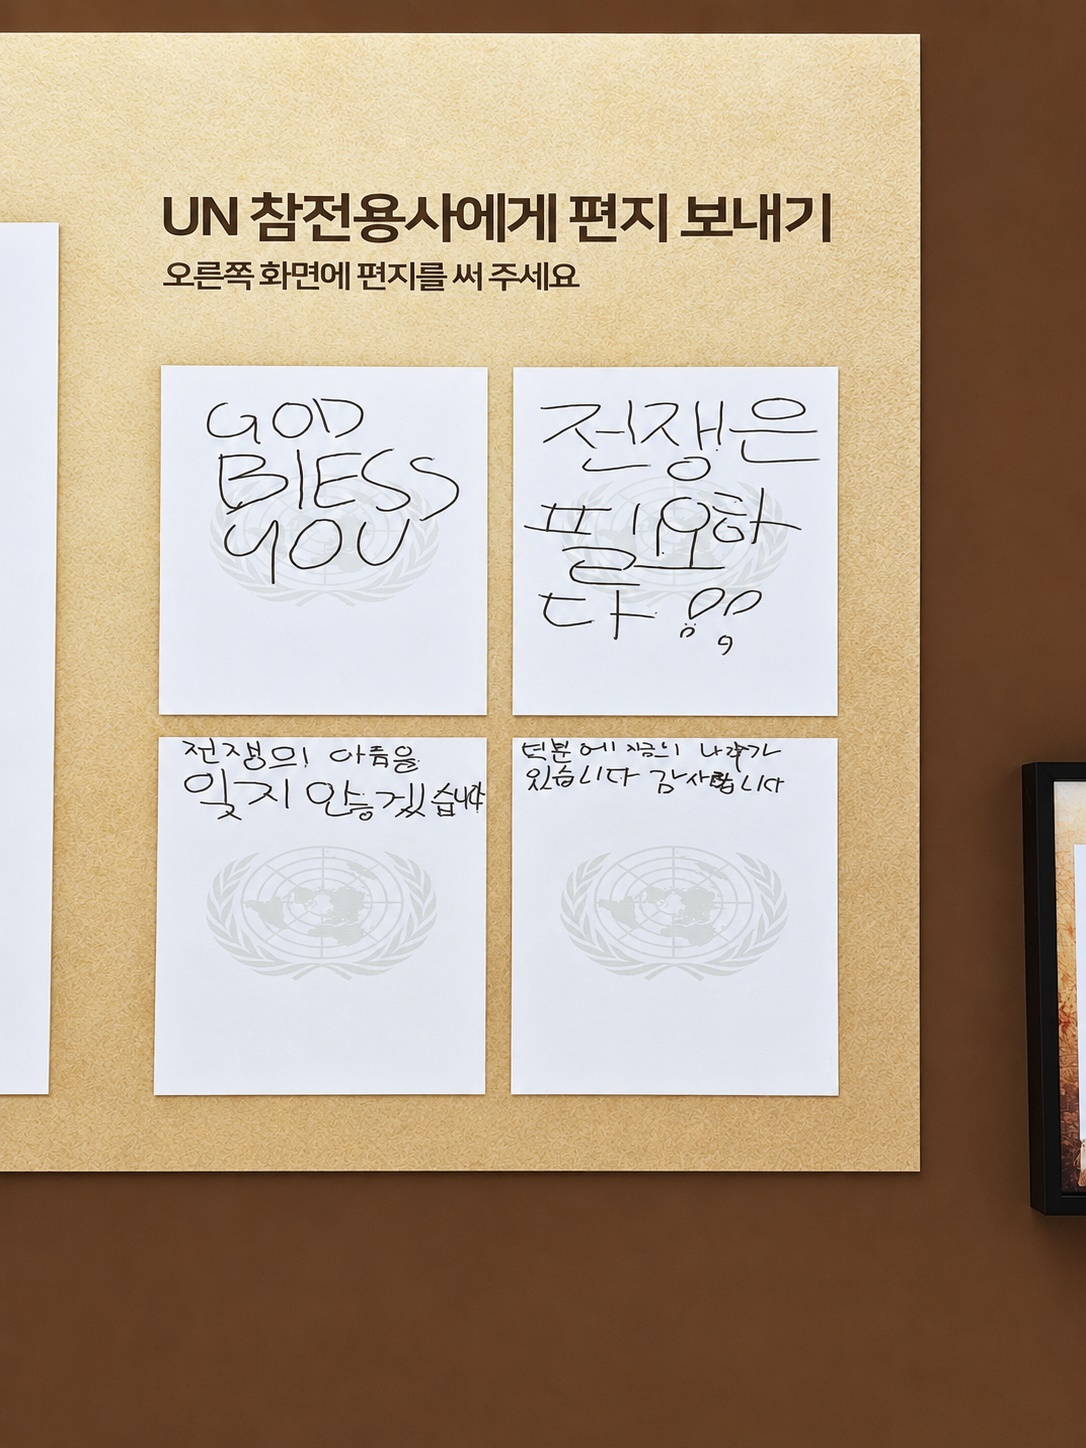 UN 참전용사에게 편지 보내기
오른쪽 화면에 편지를 써 주세요
GOD
BlESS
YOU
전쟁은
필요하
다
전쟁의 아픔을
잊지 안능겠습니다
덕분에 지금의 나라가
있습니다 감사합니다